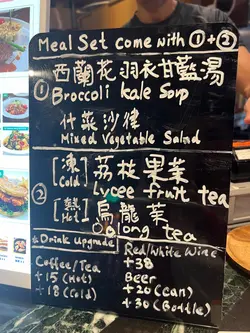 Meal Set come with ①+②
西蘭花羽衣甘藍湯
① Broccoli Kale Soup
什菜沙律
Mixed Vegetable Salad
[凍] 荔枝果茶
(Cold) Lycee fruit tea
②
[熱] 烏龍茶
(Hot) Oolong tea
*Drink Upgrade
Coffee/Tea
+15 (Hot)
+18 (Cold)
Red/White Wine
+38
Beer
+20 (Can)
+30 (Bottle)